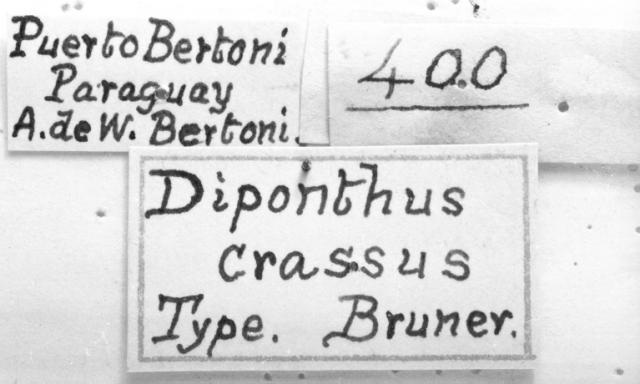 Puerto Bertoni
Paraguay
A. de W. Bertoni.
400
Diponthus
crassus
Type. Bruner.